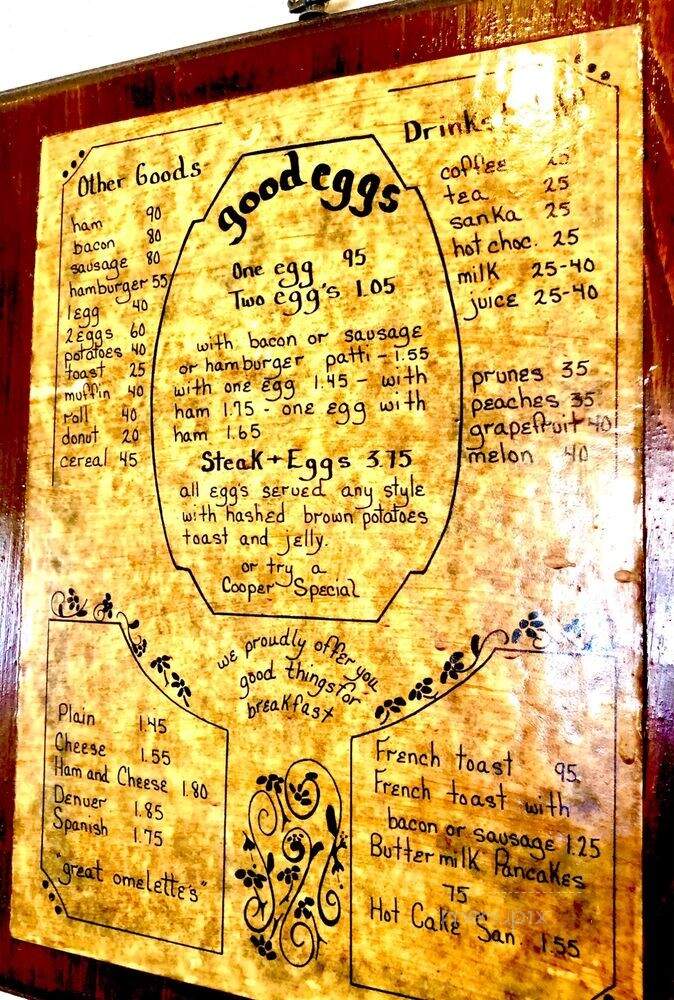 Other Goods
ham 90
bacon 80
sausage 80
hamburger 55
1 egg 40
2 eggs 60
potatoes 40
toast 25
muffin 40
roll 40
donut 20
cereal 45
good eggs
One egg 95
Two egg's 1.05
with bacon or sausage
or hamburger patti - 1.55
with one egg 1.45 - with
ham 1.75 - one egg with
ham 1.65
Steak + Eggs 3.75
all egg's served any style
with hashed brown potatoes
toast and jelly.
or try a
Cooper Special
Drinks
coffee 25
tea 25
sanka 25
hot choc. 25
milk 25-40
juice 25-40
prunes 35
peaches 35
grapefruit 40
melon 40
we proudly offer you
good things for
breakfast
Plain 1.45
Cheese 1.55
Ham and Cheese 1.80
Denver 1.85
Spanish 1.75
"great omelette's"
French toast 95
French toast with
bacon or sausage 1.25
Buttermilk Pancakes
75
Hot Cake San. 1.55